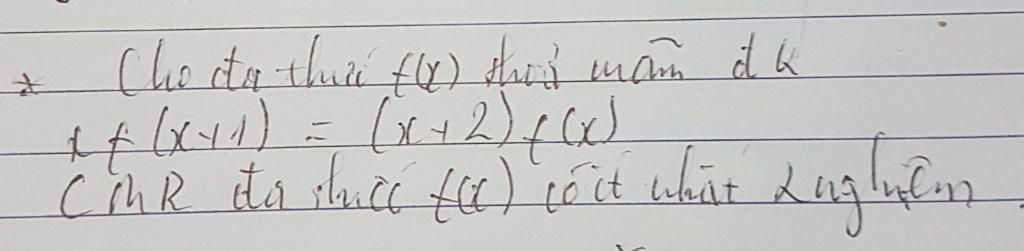 * Cho đa thức f(x) thoả mãn đk
x f(x+1) = (x+2) f(x)
CMR đa thức f(x) có ít nhất 2 nghiệm